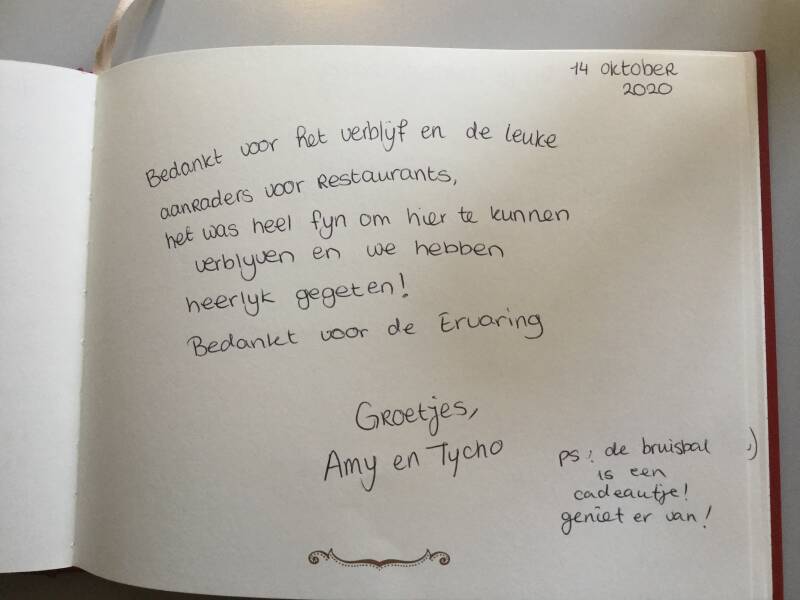 14 oktober
2020
Bedankt voor het verblijf en de leuke
aanraders voor restaurants,
het was heel fyn om hier te kunnen
verblyven en we hebben
heerlyk gegeten!
Bedankt voor de Ervaring
Groetjes,
Amy en Tycho
PS: de bruisbal ;)
is een
cadeautje!
geniet er van!